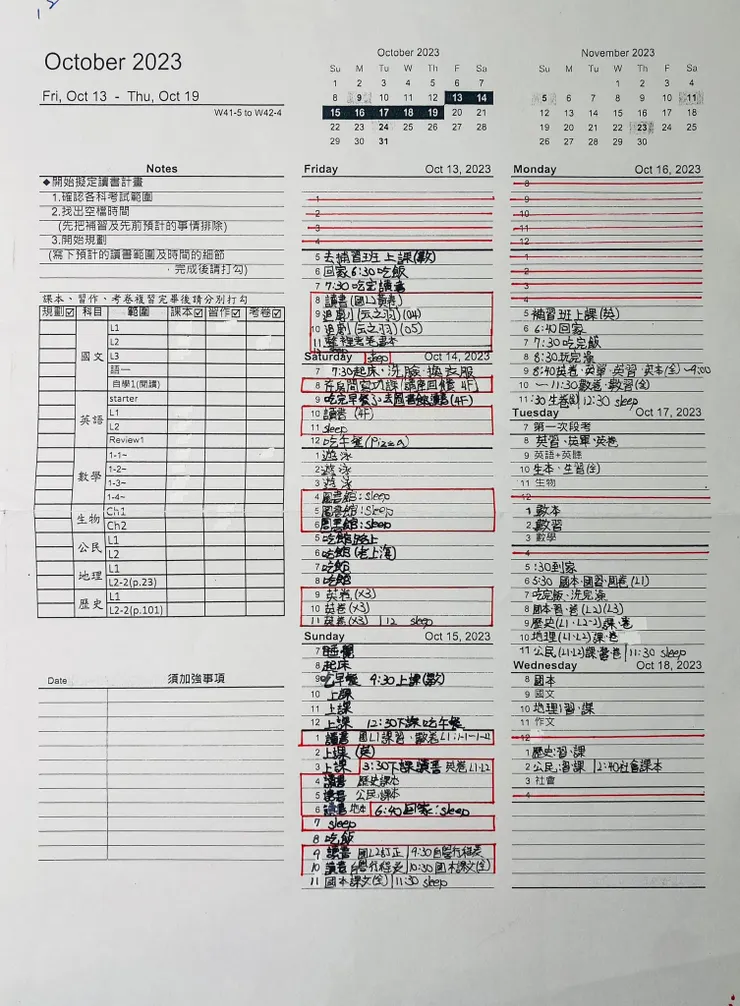 October 2023
Fri, Oct 13 - Thu, Oct 19
W41-5 to W42-4
October 2023
Su M Tu W Th F Sa
1 2 3 4 5 6 7
8 9 10 11 12 13 14
15 16 17 18 19 20 21
22 23 24 25 26 27 28
29 30 31
November 2023
Su M Tu W Th F Sa
1 2 3 4
5 6 7 8 9 10 11
12 13 14 15 16 17 18
19 20 21 22 23 24 25
26 27 28 29 30
Notes
◆開始擬定讀書計畫
1.確認各科考試範圍
2.找出空檔時間
(先把補習及先前預計的事情排除)
3.開始規劃
(寫下預計的讀書範圍及時間的細節
，完成後請打勾)
課本、習作、考卷複習完畢後請分別打勾
規劃☑ 科目 範圍 課本☑ 習作☑ 考卷☑
國文
L1
L2
L3
語一
自學1(閱讀)
英語
starter
L1
L2
Review1
數學
1-1~
1-2~
1-3~
1-4~
生物
Ch1
Ch2
公民
L1
L2
地理
L1
L2-2(p.23)
歷史
L1
L2-2(p.101)
Date 須加強事項
Friday Oct 13, 2023
1
2
3
4
5 去補習班上課(數)
6 回家 6:30吃飯
7 7:30吃完讀書
8 讀書
9 追劇(云之羽)(04)
10 追劇(云之羽)(05)
11
sleep
Saturday Oct 14, 2023
7 7:30起床、洗臉、換衣服
8
9 吃完早餐了、去圖書館讀書(4F)
10 讀書(4F)
11 sleep
12 吃午餐(Pizza)
1 游泳
2 游泳
3 游泳
4 圖書館:sleep
5 圖書館:sleep
6 圖書館:sleep
5 吃館路上
6 吃館(老上海)
7 吃館
8 吃館
9 英卷(x3)
10 英卷(x3)
11 英卷(x3) | 12 sleep
Sunday Oct 15, 2023
7 睡懶
8 起床
9 吃早餐 9:30上課(數)
10 上課
11 上課
12 上課 12:30下課吃午餐
1 讀書 國L1課習、數卷L1:1-1~1-4
2 上課(英)
3 上課 |3:30下課讀書 英卷L1-L2
4 讀書 歷史課本
5 讀書 公民課本
6 讀書 地本 |6:40回家:sleep
7 sleep
8 吃飯
9 讀書 國L2訂正 |9:30自學行程表
10 讀書 自學行程表 |10:30國本課文(全)
11 國本課文(全) |11:30 sleep
Monday Oct 16, 2023
8
9
10
11
12
1
2
3
4
5 補習班上課(英)
6 6:40回家
7 7:30吃完飯
8 8:30玩完澡
9 8:40英卷、英單、英習、英本(全)~9:00
10 ~11:30數卷、數習(全)
11 :30生卷 12:30 sleep
Tuesday Oct 17, 2023
7 第一次段考
8 英習、英單、英卷
9 英語+英聽
10 生本、生習(全)
11 生物
12
1 數本
2 數習
3 數學
4
5 :30到家
6 5:30 國本、國習、國卷(L1)
7 吃完飯、洗完澡
8 國本、習、卷(L2)(L3)
9 歷史(L1、L2-2)課、卷
10 地理(L1、L2)課、卷
11 公民(L1、L2)課習卷 |11:30 sleep
Wednesday Oct 18, 2023
8 國本
9 國文
10 地理1習、課
11 作文
12
1 歷史:習、課
2 公民:習、課 |2:40社會課本
3 社會
4